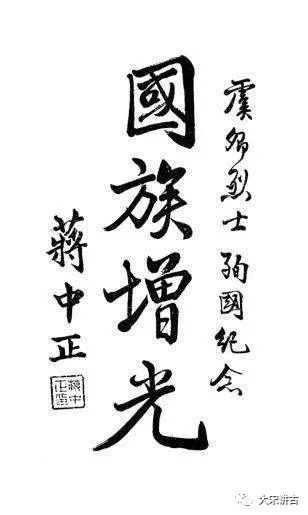 虞卿烈士殉國紀念
國族增光
蔣中正
蔣中正印
大宋讲古